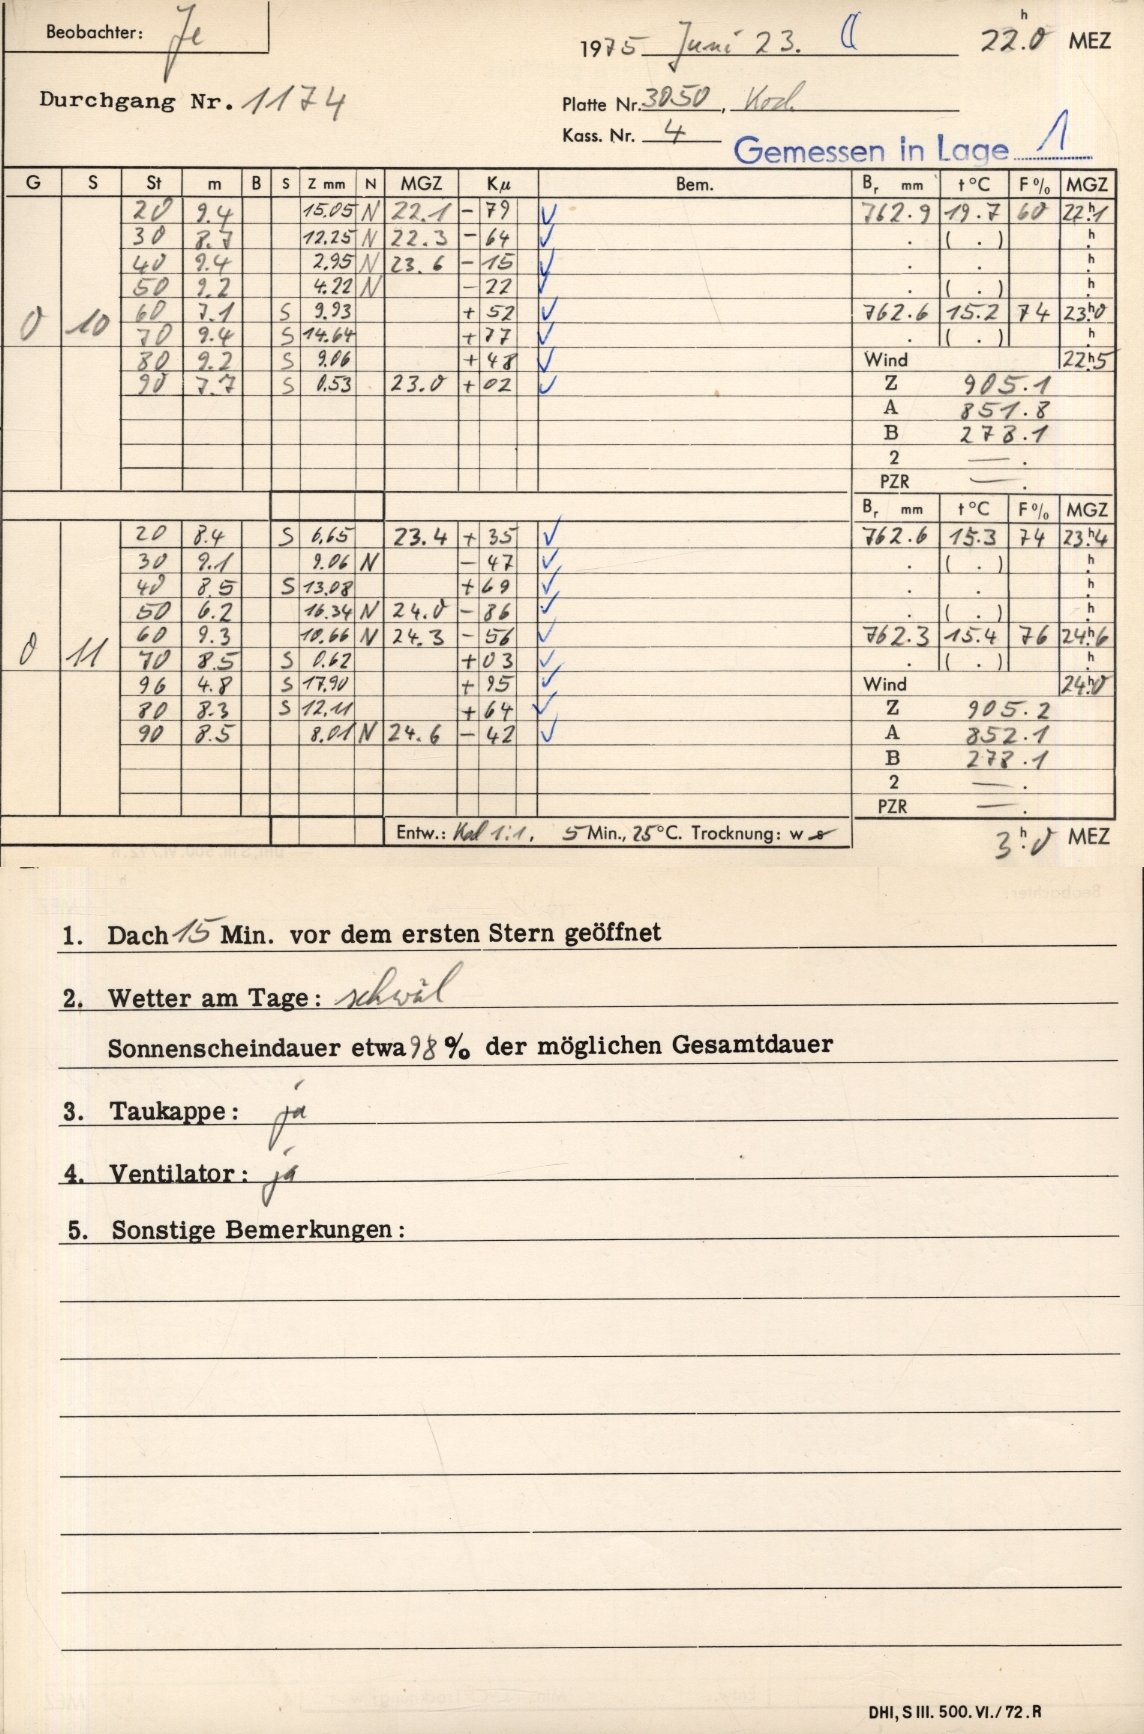 Beobachter: Je
1975 Juni 23. 22.h0 MEZ
Durchgang Nr. 1174
Platte Nr. 3050, Kod.
Kass. Nr. 4
Gemessen in Lage 1
G S St m B S Z mm N MGZ Kμ Bem. Br mm t°C F% MGZ
20 9.4 15.05 N 22.1 - 79 ✓ 762.9 19.7 60 22h.1
30 8.7 12.25 N 22.3 - 64 ✓ . ( . ) h.
40 9.4 2.95 N 23.6 - 15 ✓ . . h.
50 9.2 4.22 N - 22 ✓ . ( . ) h.
0 10 60 7.1 S 9.93 + 52 ✓ 762.6 15.2 74 23h.0
70 9.4 S 14.64 + 77 ✓ . ( . ) h.
80 9.2 S 9.06 + 48 ✓ Wind 22h.5
90 7.7 S 0.53 23.0 + 02 ✓ Z 905.1
A 851.8
B 278.1
2 — .
PZR — .
Br mm t°C F% MGZ
20 8.4 S 6.65 23.4 + 35 ✓ 762.6 15.3 74 23h.4
30 9.1 9.06 N - 47 ✓ . ( . ) h.
40 8.5 S 13.08 + 69 ✓ . . h.
50 6.2 16.34 N 24.0 - 86 ✓ . ( . ) h.
0 11 60 9.3 10.66 N 24.3 - 56 ✓ 762.3 15.4 76 24h.6
70 8.5 S 0.62 + 03 ✓ . ( . ) h.
96 4.8 S 17.90 + 95 ✓ Wind 24h.0
80 8.3 S 12.11 + 64 ✓ Z 905.2
90 8.5 8.01 N 24.6 - 42 ✓ A 852.1
B 278.1
2 — .
PZR — .
Entw.: Kal 1:1. 5 Min., 25°C. Trocknung: w s
3h.0 MEZ
1. Dach 15 Min. vor dem ersten Stern geöffnet
2. Wetter am Tage: schwül
Sonnenscheindauer etwa 98% der möglichen Gesamtdauer
3. Taukappe: ja
4. Ventilator: ja
5. Sonstige Bemerkungen:
DHI, S III. 500. VI./72. R